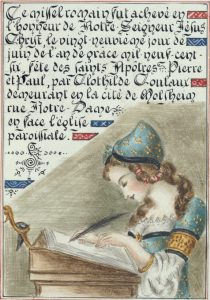 Ce missel romain fut achevé en
l'honneur de Notre Seigneur Jésus
Christ le vingt neuvième jour de
juin de l'an de grâce mil neuf cent
fête des saints Apôtres Pierre
et Paul, par Clothilde Coulaux
demeurant en la cité de Molsheim
rue Notre-Dame
en face l'église
paroissiale.